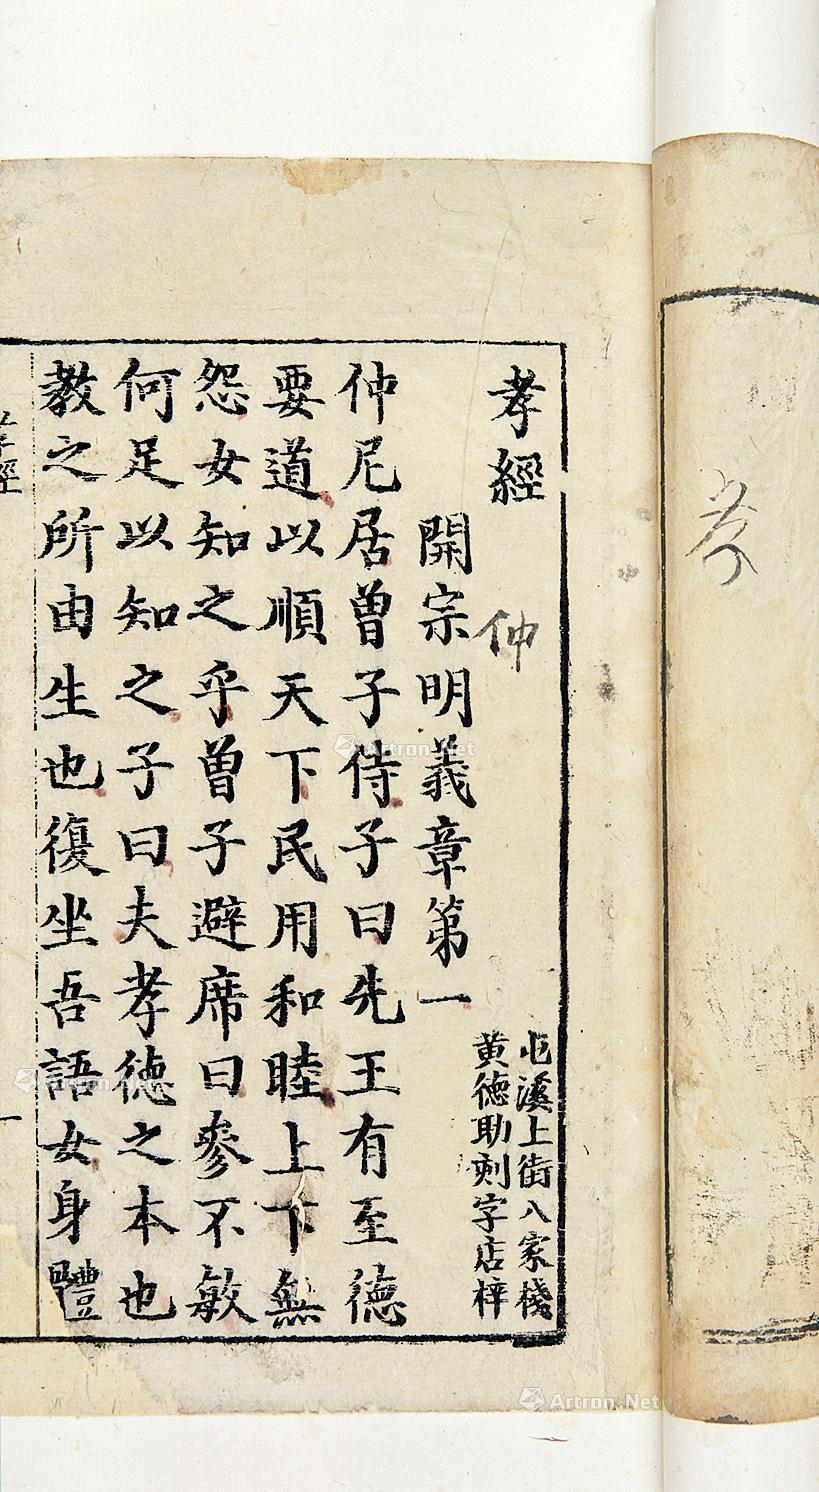 孝
孝經
仲
屯溪上街八家棧
黄德助刻字店梓
開宗明義章第一
仲尼居曾子侍子曰先王有至德
要道以順天下民用和睦上下無
怨女知之乎曾子避席曰參不敏
何足以知之子曰夫孝德之本也
教之所由生也復坐吾語女身體
孝經
一
Artron.Net
Artron.Net
Artron.Net